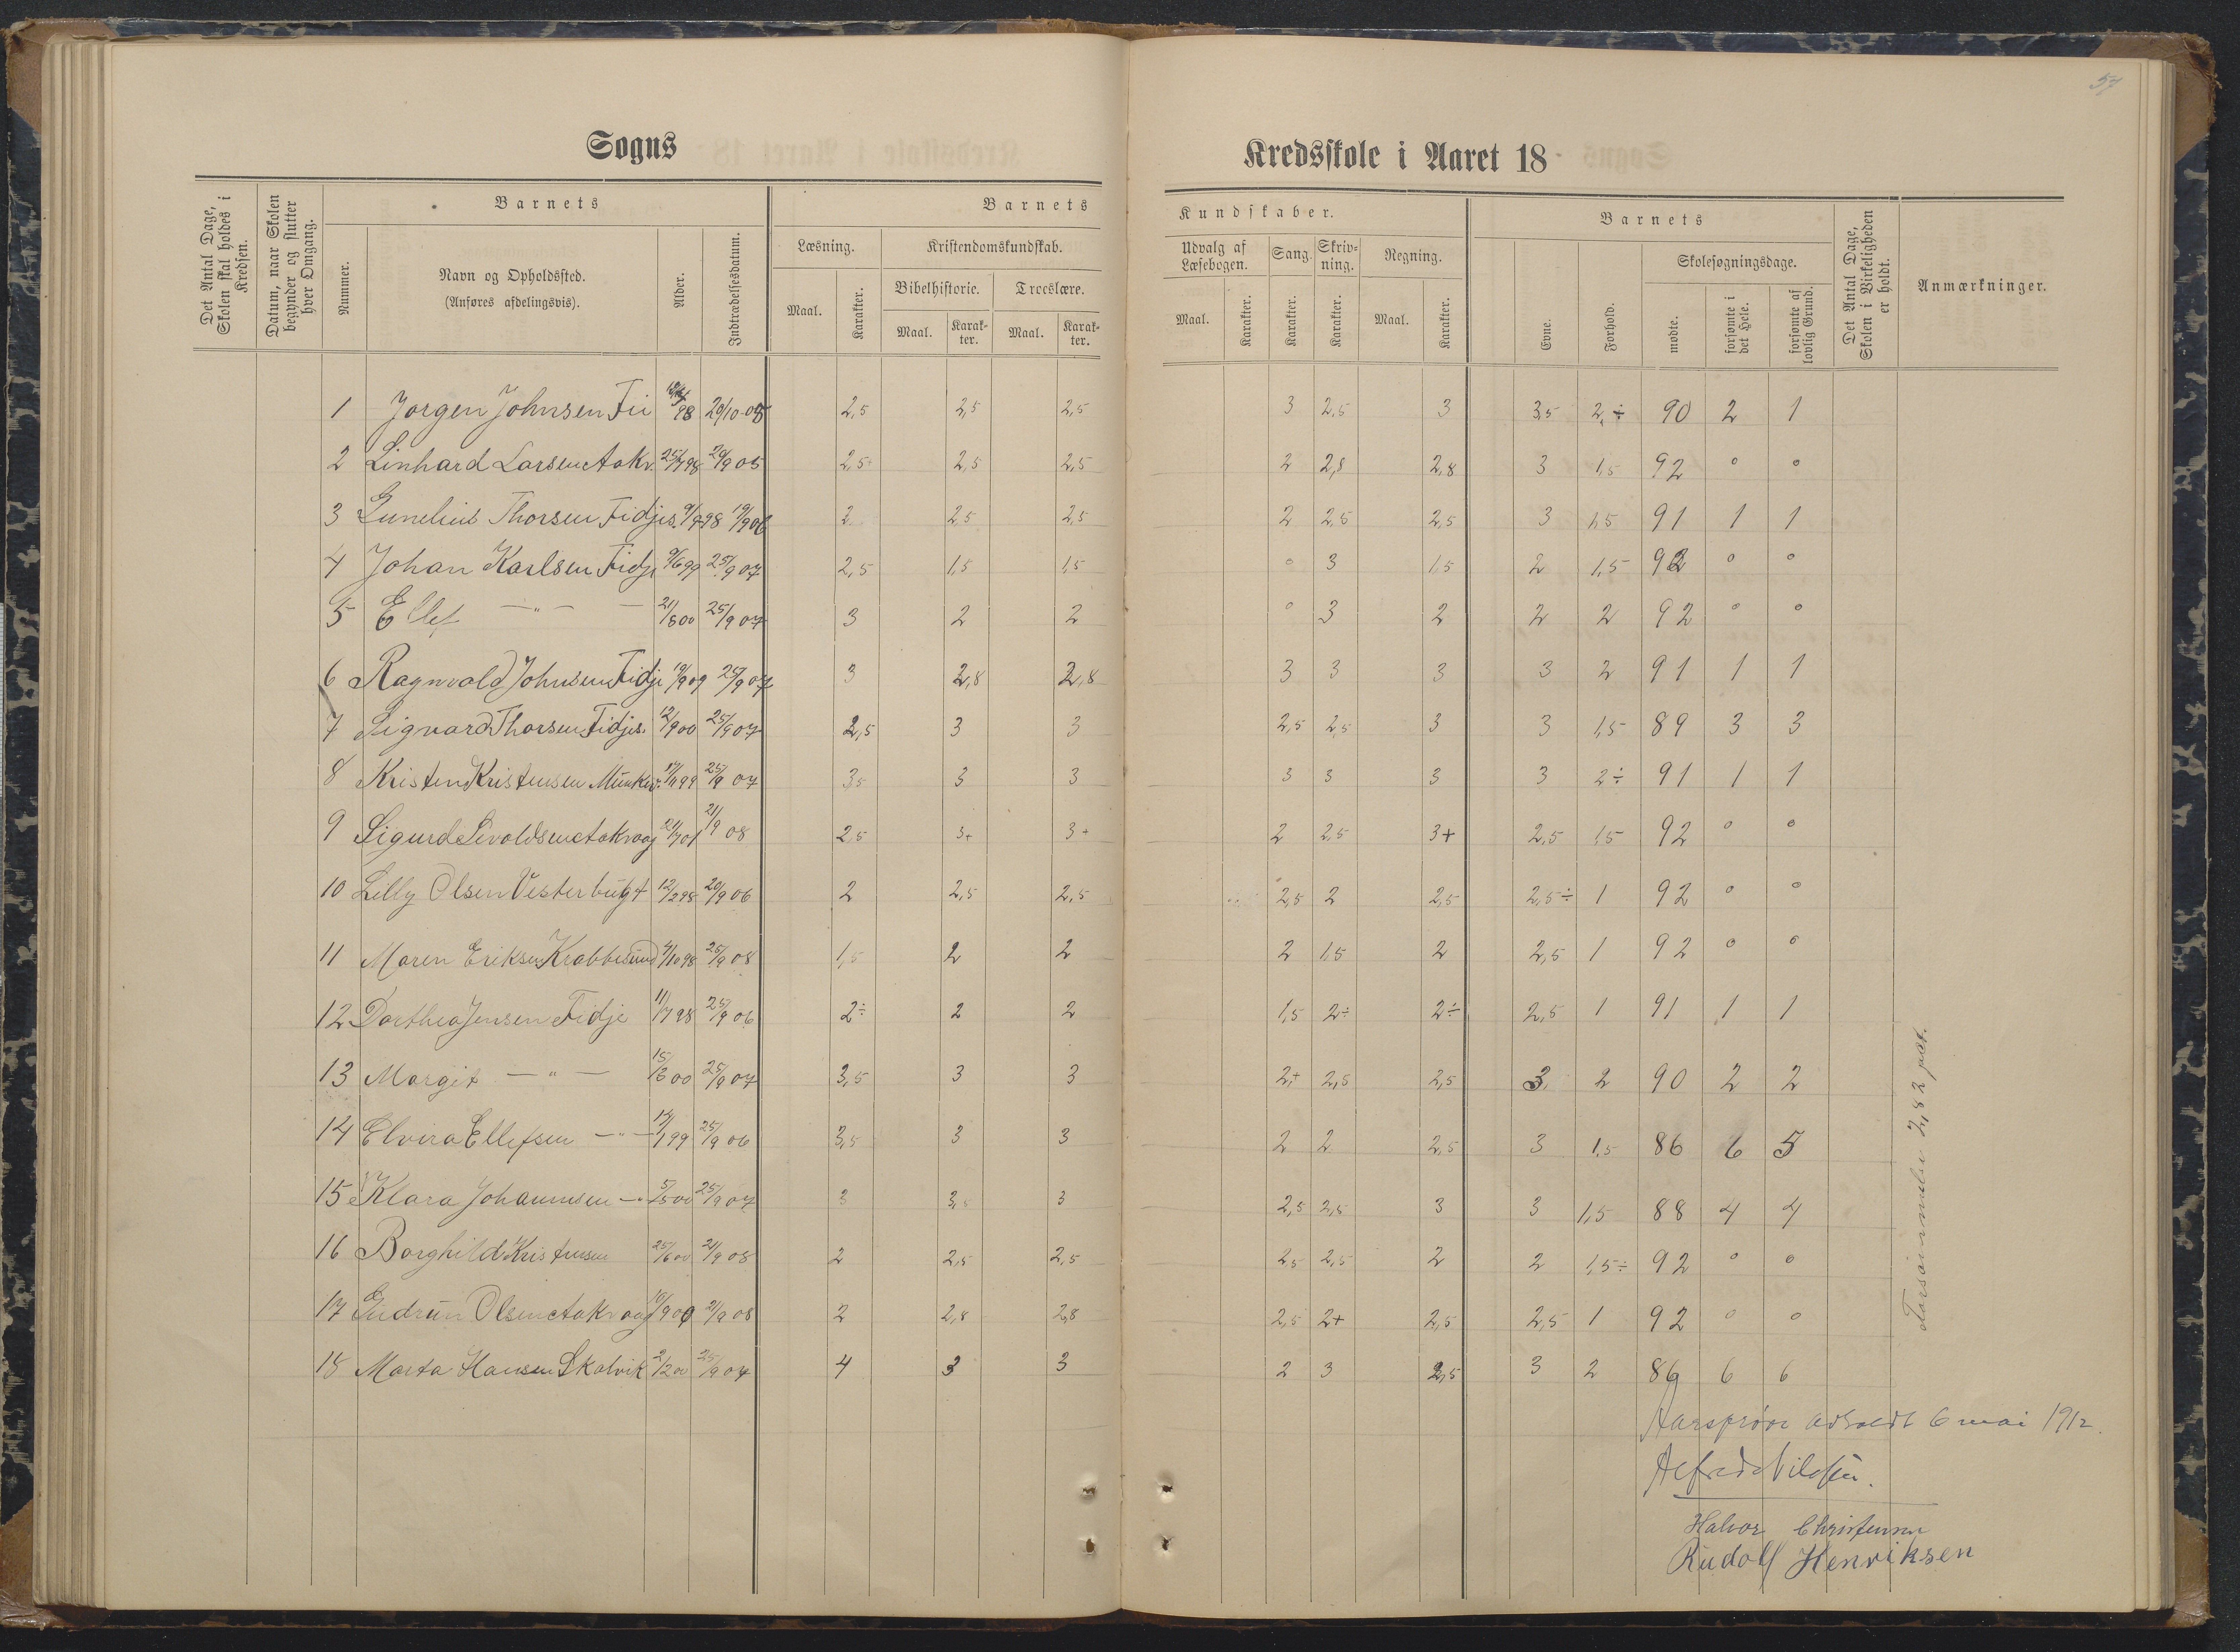 57
Sogns Kredsskole i Aaret 18
Det Antal Dage, Skolen skal holdes i Kredsen.
Datum, naar Skolen begynder og slutter hver Omgang.
Barnets
Nummer.
Navn og Opholdssted.
(Anføres afdelingsvis).
Alder.
Indtrædelsesdatum.
Barnets Kundskaber.
Læsning.
Maal. Karakter.
Kristendomskundskab.
Bibelhistorie. Troeslære.
Maal. Karakter. Maal. Karakter.
Udvalg af Læsebogen.
Maal. Karakter.
Sang. Karakter.
Skrivning. Karakter.
Regning.
Maal. Karakter.
Barnets
Evne. Forhold.
Skolesøgningsdage.
mødte. forsømte i det Hele. forsømte af lovlig Grund.
Det Antal Dage, Skolen i Virkeligheden er holdt.
Anmærkninger.
1 Jorgen Johnsen Fii 98 20/10-05 2,5 2,5 2,5 3 2,5 3 3,5 2,÷ 90 2 1
2 Linhard Larsen Aakv. 25/7 98 20/9 05 2,5 2,5 2,5 2 2,8 2,8 3 1,5 92 0 0
3 Gunelius Thorsen Fidjes. 9/9 98 19/9 06 2 2,5 2,5 2 2,5 2,5 3 1,5 91 1 1
4 Johan Karlsen Fidje 9/6 99 25/9 07 2,5 1,5 1,5 0 3 1,5 2 1,5 92 0 0
5 Ellef — " — 21/8 00 25/9 07 3 2 2 0 3 2 2 2 92 0 0
6 Ragnvald Johnsen Fidje 19/9 09 25/9 07 3 2,8 2,8 3 3 3 3 2 91 1 1
7 Sigvard Thorsen Fidjes. 12/9 00 25/9 07 2,5 3 3 2,5 2,5 3 3 1,5 89 3 3
8 Kristen Kristensen 99 25/9 07 3,5 3 3 3 3 3 3 2÷ 91 1 1
9 Sigurd Sivoldsen Aakvaag 21/7 01 21/9 08 2,5 3+ 3+ 2 2,5 3+ 2,5 1,5 92 0 0
10 Lilly Olsen Vesterbugt 12/2 98 20/9 06 2 2,5 2,5 2,5 2 2,5 2,5÷ 1 92 0 0
11 Maren Eriksen Krabbesund 4/10 98 25/9 08 1,5 2 2 2 1,5 2 2,5 1 92 0 0
12 Dorthea Jensen Fidje 11/7 98 25/9 06 2÷ 2 2 1,5 2÷ 2÷ 2,5 1 91 1 1
13 Margit — " — 15/6 00 25/9 07 3,5 3 3 2,+ 2,5 2,5 3 2 90 2 2
14 Elvira Ellefsen — " — 14/1 99 25/9 06 3,5 3 3 2 2 2,5 3 1,5 86 6 5
15 Klara Johannesen — " — 5/5 00 25/9 07 3 3,5 3 2,5 2,5 3 3 1,5 88 4 4
16 Borghild Kristensen 25/6 00 21/9 08 2 2,5 2,5 2,5 2,5 2 2 1,5÷ 92 0 0
17 Gudrun Olsen Aakvaag 10/9 00 21/9 08 2 2,8 2,8 2,5 2+ 2,5 2,5 1 92 0 0
18 Marta Hansen Skalvik 2/2 00 25/9 07 4 3 3 2 3 2,5 3 2 86 6 6
Forsømmelse 2,82 pct.
Aarsprøve avholdt 6 mai 1912.
Alfred Nilsen.
Halvor Christensen
Rudolf Henriksen